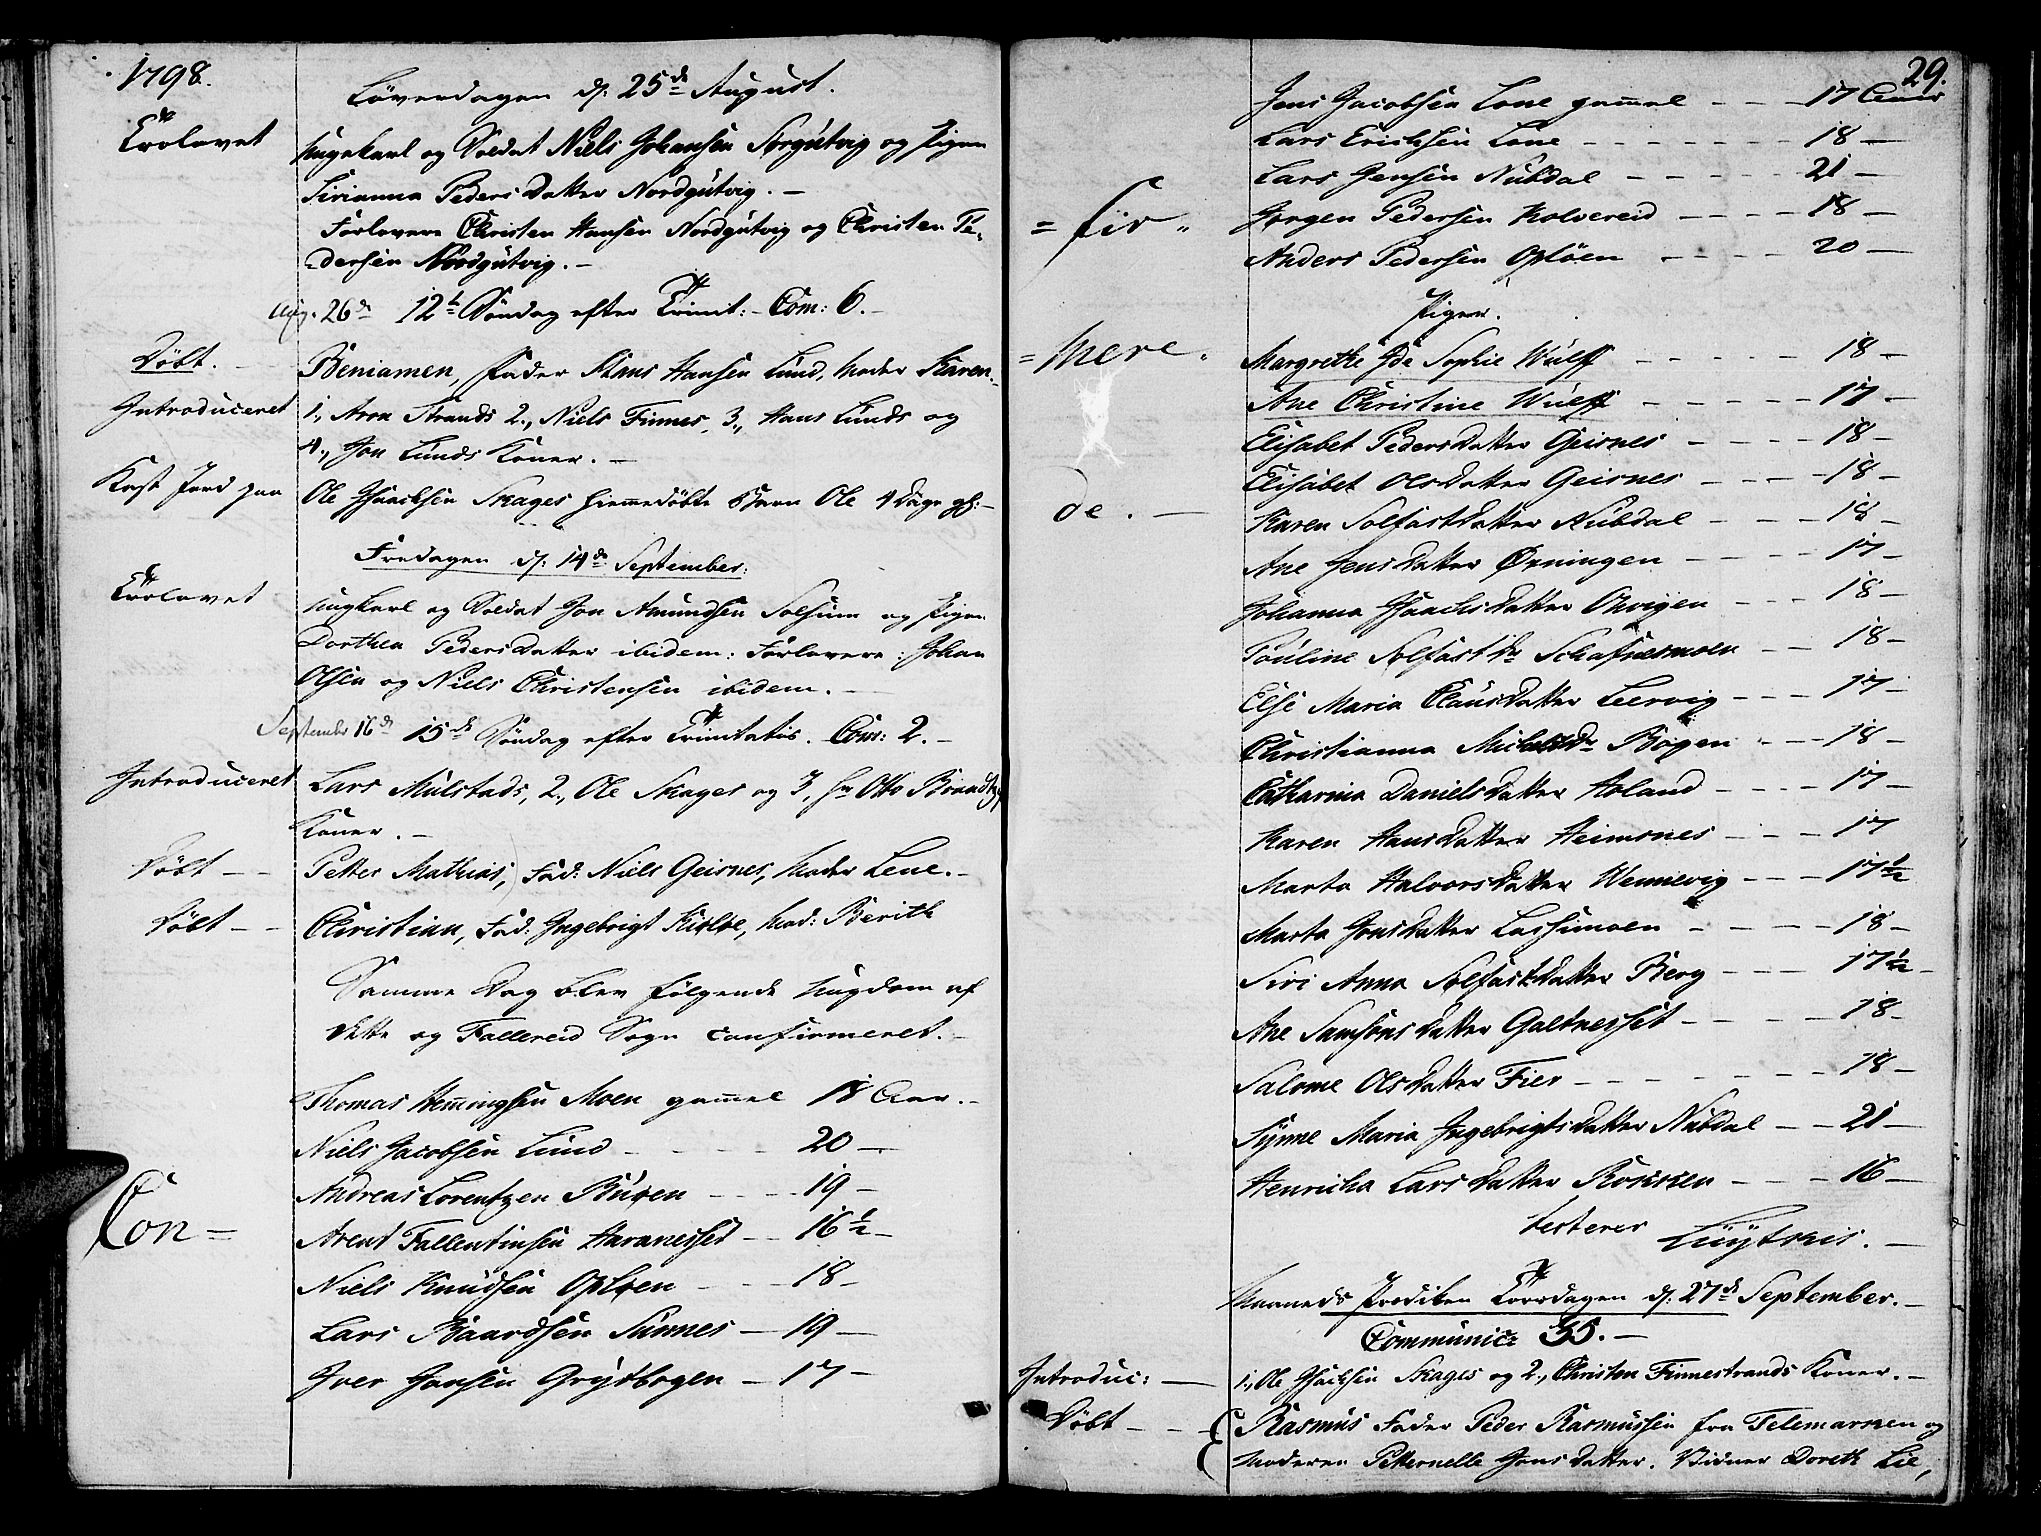 1798.
Löverdagen d: 25de August.
Trolovet
Ungekarl og Soldat Niels Johansen Sørgutvig og Pigen
Sirianna Peders Datter Nordgutvig. -
Forlovere Christen Hansen Nordgutvig og Christen Pe-
-dersen Nordgutvig. -
Aug. 26de 12te Søndag efter Trinit: - Com: 6. -
Döbt. -
Beniamen, Fader Klaus Hansen Lund, Moder Karen. -
Introduceret
1., Aron Strands 2., Niels Finnes, 3., Hans Lunds og
4., Jon Lunds Koner. -
Kast Jord paa
Ole Isaachsen Skages hiemmedöbte Barn Ole 4 Dage gl: -
Fredagen d: 14de September.
Trolovet
Ungkarl og Soldat Jon Amundsen Solsum og Pigen
Dorthea Peders Datter ibidem: Forlovere: Johan
Olsen og Niels Christensen ibidem. -
September 16de 15de Söndag efter Trinitatis. Com: 2. -
Introduceret
Lars Mulstads, 2., Ole Skages og 3, Hr Otto Brandtzg
Koner. -
Döbt - -
Petter Mathias, Fad: Niels Geisnes, Moder Lene. -
Döbt - -
Christian, Fad: Ingebrigt Kirkøe, Mod: Berith
Samme Dag blev følgende Ungdom af
dette og Follereid Sogn confirmeret. -
Thomas Hemingsen Moen gamel 18 Aar. -
Niels Jacobsen Lund - - - - 20 -
Andreas Lorentzen Buøen - - - 19 -
Con =
Arent Fallentinsen Haranesset - - 16 1/2 -
Niels Knudsen Opløen - - - 18 -
Lars Baardsen Sunnes - 19 -
Iver Hansen Grydbogen - 17 -
29.
Jens Jacobsen Lone gammel - - - 17 Aar
Lars Erichsen Lone - - - - - - - 18 -
Lars Jensen Nubdal - - - - - 21 -
= fir "
Jørgen Pedersen Kolvereid - - - - 18 -
Anders Pedersen Opløen - - - - 20 -
Piger.
= mere "
Margrethe Ida Sophie Wulff - - - - - 18 -
Ane Christine Wulff - - - - - 17 -
Elisabet Peders Datter Geisnes - - - - 18 -
Elisabet Ols Datter Geisnes - - - - 18 -
de. -
Karen Solfast Datter Nubdal - - - - 18 -
Ane Jens Datter Ørningen - - - - 17 -
Johanna Isaachs Datter Ohrigen - - - 18 -
Pouline Solfast Dr Schafnesmoen - - - 18 -
Else Maria Claus Datter Leervig - - - 17 -
Christianna Michels Dr Bogen - - - 18 -
Catharina Daniels Datter Aoland - - - 17 -
Karen Hans Datter Heimsnes - - - - 17
Marta Halvors Datter Wennevig - - - 17 1/2
Marta Jons Datter Lassemoen - - - - 18 -
Siri Anna Solfast Datter Berg - - - 17 1/2 -
Ane Samsons Datter Galtnesset - - - - 18 -
Salome Ols Datter Fier - - - - - - - 18 -
Synne Maria Ingebrigts Datter Nubdal - - 21 -
Henricha Lars Datter Rokken - - - 16 -
testerer
Lüytkis. -
Maaneds Prediken Torsdagen d: 27de September. -
Communic: 35. -
Introduc: -
1., Ole Isachsen Skages og 2., Christen Finnestrands Koner. -
Döbt - - -
Rasmus Fader Peder Rasmussen fra Telemarken og
Moderen Petternelle Jons Datter. Vidner Doreth Lie,